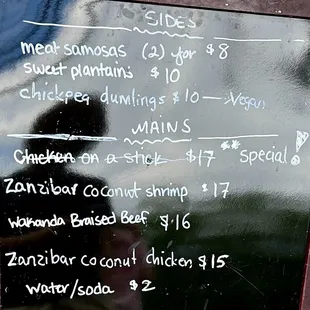 SIDES
meat samosas (2) for $8
sweet plantains $10
chickpea dumlings $10 — Vegan
MAINS
Chicken on a stick $17 ** Special!
Zanzibar coconut shrimp $17
Wakanda Braised Beef $16
Zanzibar coconut chicken $15
water/soda $2